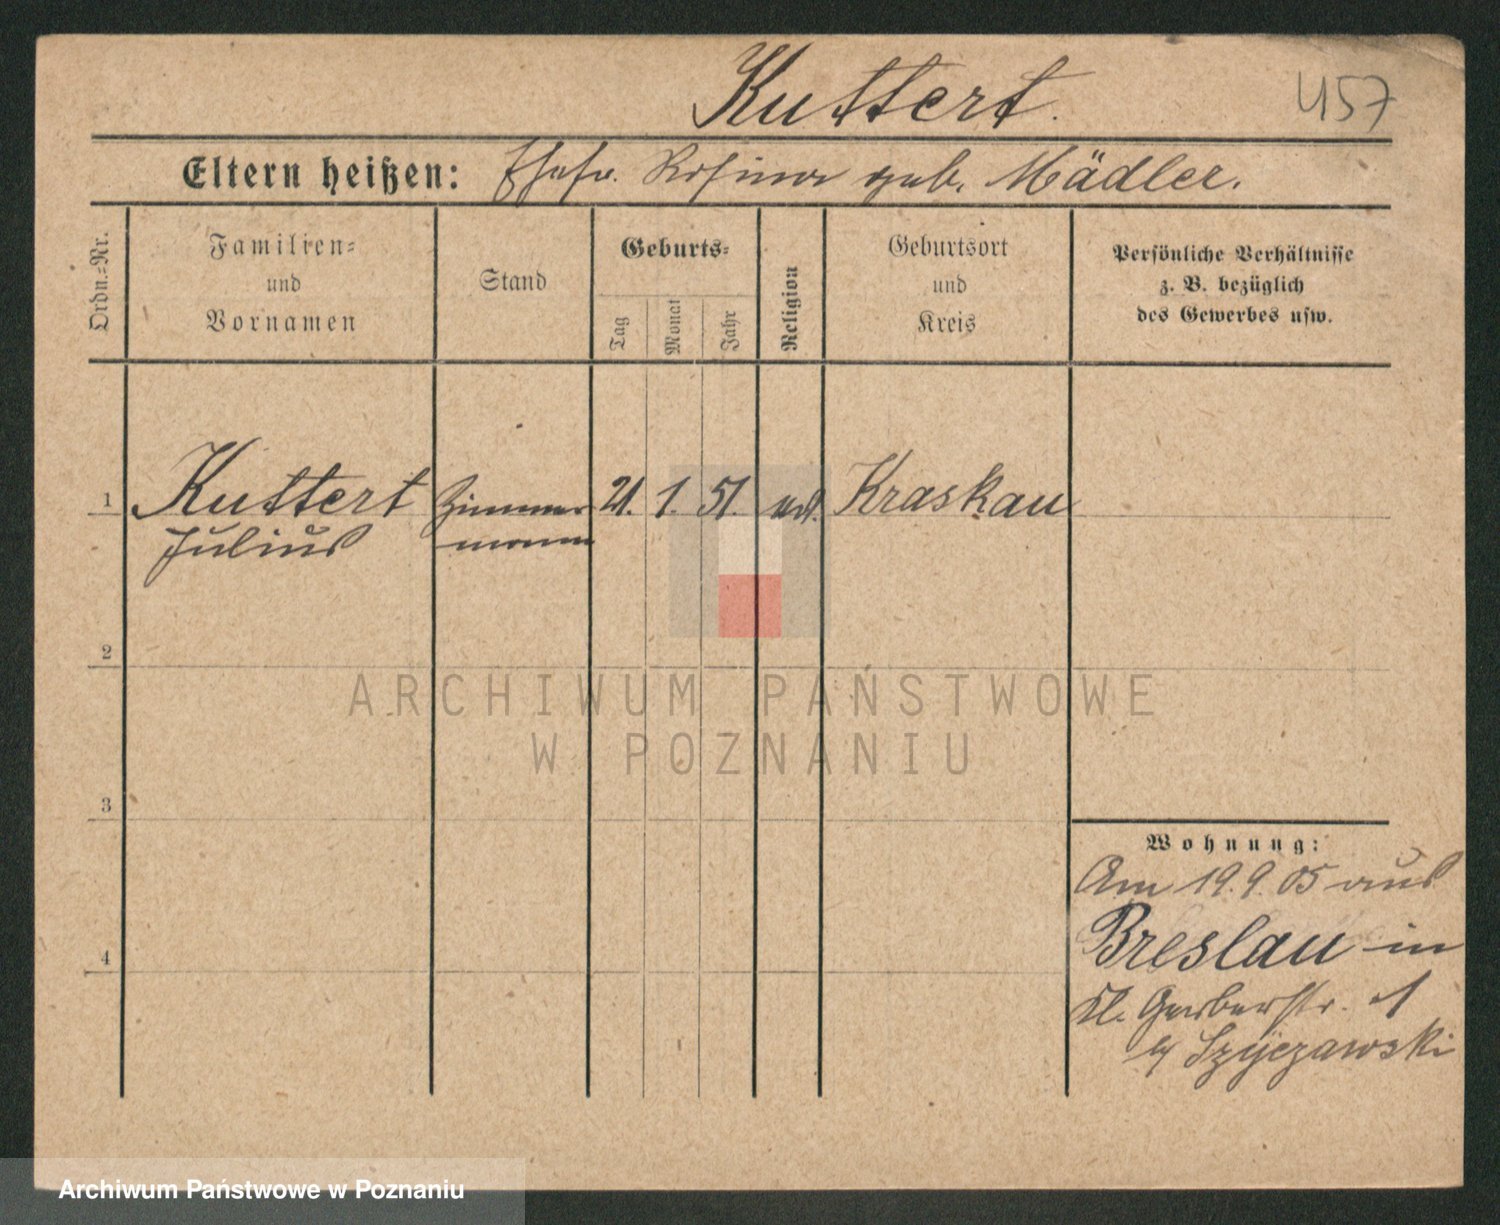 Kuttert.
457
Eltern heißen: Ehefr. Rosina geb. Mädler.
Ordn.=Nr.
Familien=
und
Vornamen
Stand
Geburts=
Tag
Monat
Jahr
Religion
Geburtsort
und
Kreis
Persönliche Verhältnisse
z. B. bezüglich
des Gewerbes usw.
1 Kuttert Zimmer 21. 1. 51. Kraskau
Julius mann
2
ARCHIWUM PAŃSTWOWE
W POZNANIU
3
Wohnung:
Am 19.9.05 aus
4 Breslau in
Kl. Gerberstr. 1
Szyczawski
Archiwum Państwowe w Poznaniu